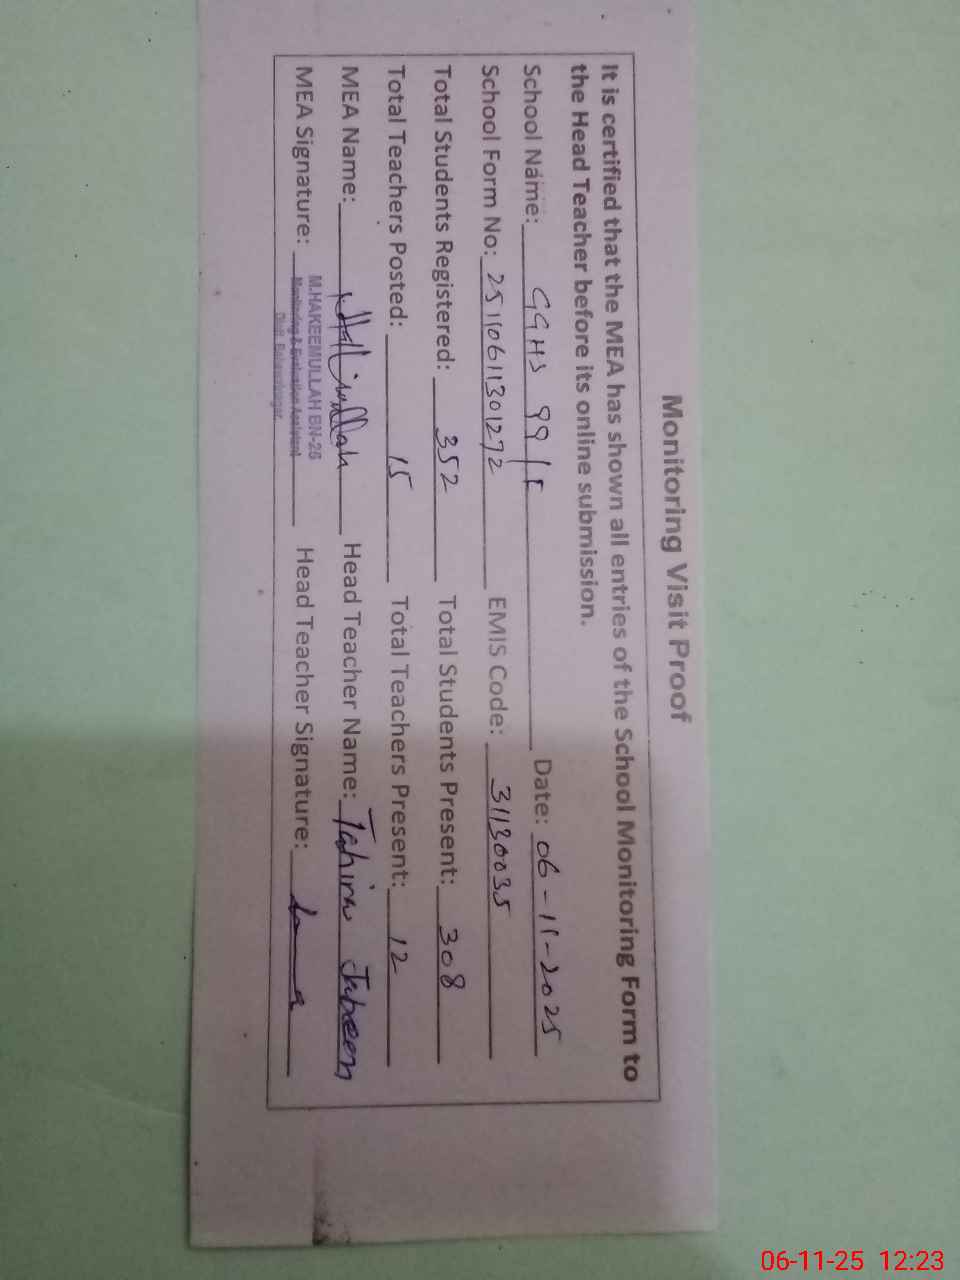 Monitoring Visit Proof
It is certified that the MEA has shown all entries of the School Monitoring Form to
the Head Teacher before its online submission.
School Name: GGHS 99/F Date: 06-11-2025
School Form No: 25110611301272 EMIS Code: 31130035
Total Students Registered: 352 Total Students Present: 308
Total Teachers Posted: 15 Total Teachers Present: 12
MEA Name: Head Teacher Name: Tahira Jabeen
MEA Signature: Head Teacher Signature:
M.HAKEEMULLAH BN-26
Monitoring & Evaluation Assistant
Distt. Bahawalnagar
06-11-25 12:23